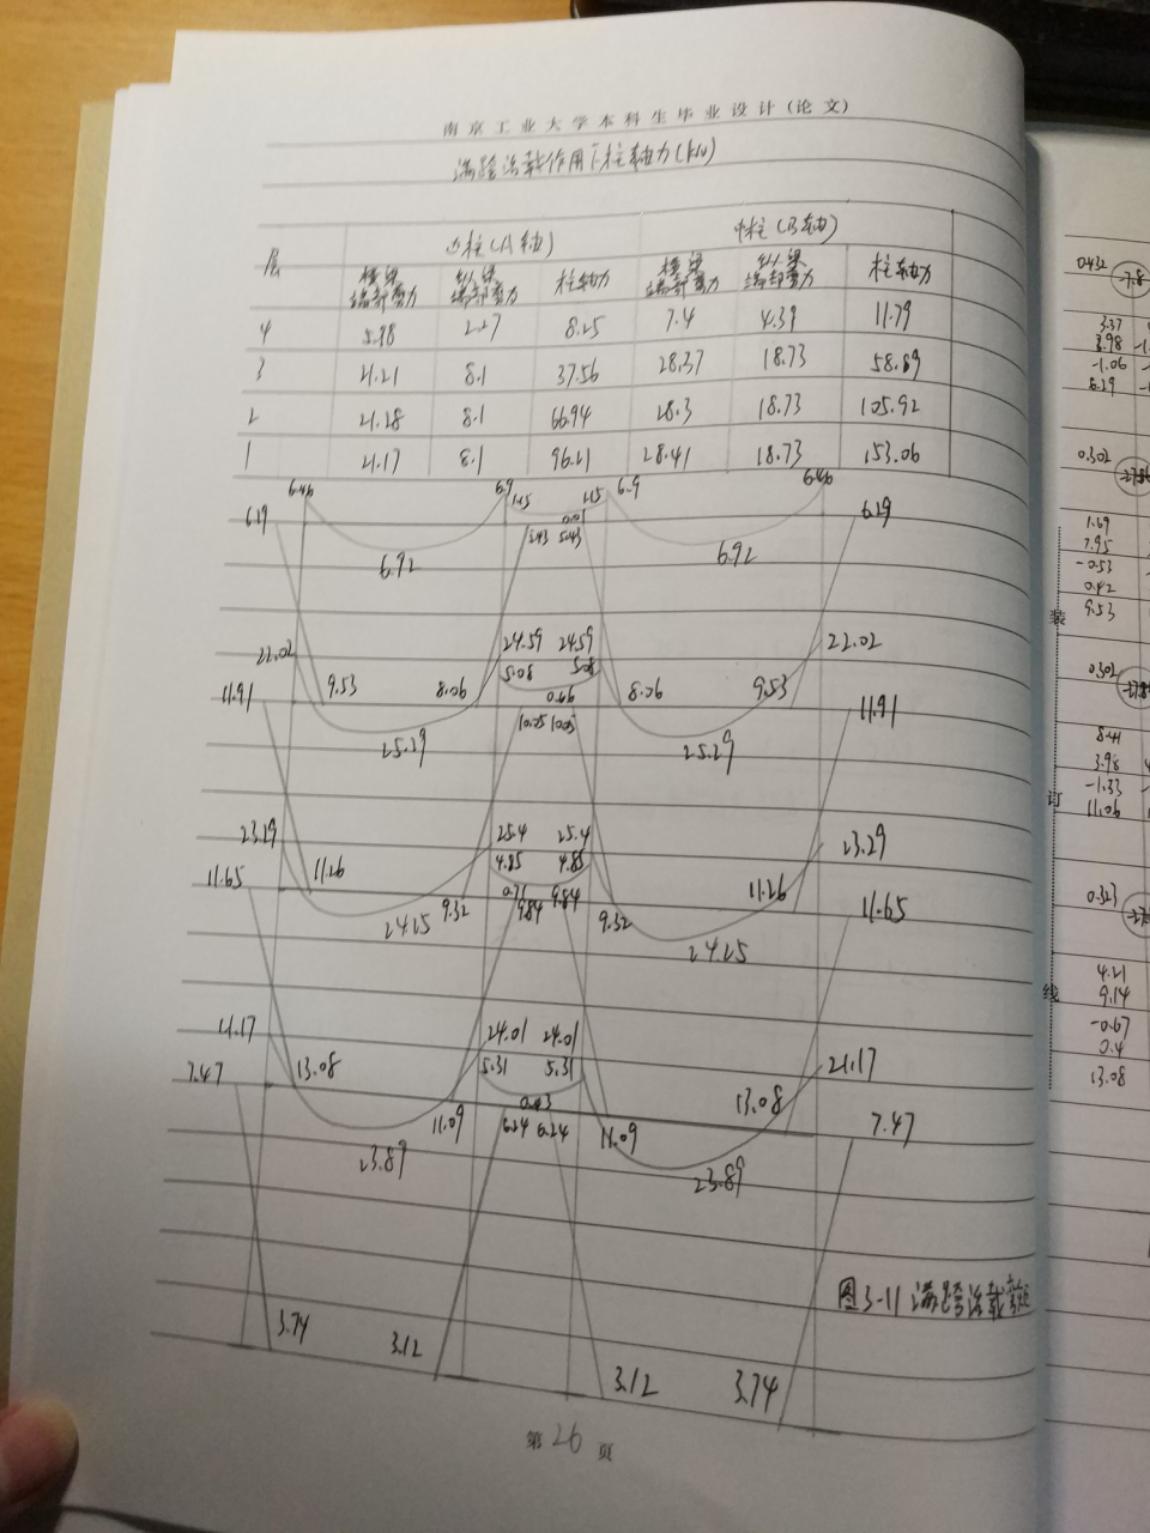 南京工业大学本科生毕业设计(论文)
满跨活载作用下柱轴力(kN)
层 边柱(A轴) 中柱(B轴)
横梁端部剪力 纵梁端部剪力 柱轴力 横梁端部剪力 纵梁端部剪力 柱轴力
4 5.98 2.27 8.25 7.4 4.39 11.79
3 21.21 8.1 37.56 28.37 18.73 58.89
2 21.28 8.1 66.94 28.3 18.73 105.92
1 21.17 8.1 96.21 28.41 18.73 153.06
6.46 6.9 1.15 1.15 6.9 6.46
6.29 6.29
5.43 5.43
6.92 6.92
22.02 24.59 24.59 22.02
5.08 5.08
11.91 9.53 8.06 0.66 8.06 9.53 11.91
10.25 10.25
25.29 25.29
23.29 25.4 25.4 23.29
4.85 4.85
11.65 11.26 9.32 9.84 9.84 9.32 11.26 11.65
24.25 24.25
21.17 24.01 24.01 21.17
5.31 5.31
7.47 13.08 11.09 6.24 6.24 11.09 13.08 7.47
23.89 23.89
图3-11 满跨活载弯矩
3.74 3.12 3.12 3.74
第26页
0.432
-7.8
3.37
3.98
-1.06
6.29
0.302
1.69
7.95
-0.53
0.42
9.53
装
0.302
8.41
3.98
-1.33
11.06
订
0.323
4.21
9.14
-0.67
0.4
13.08
线